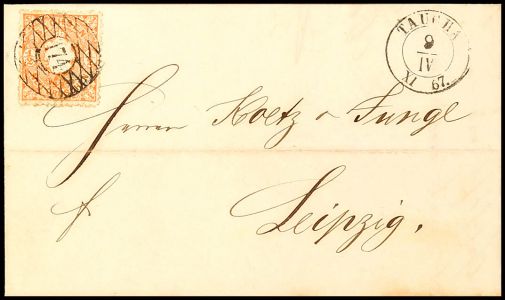 174
TAUCHA
9
IV
XI 67.
Herren Holtz & Junge
Leipzig.